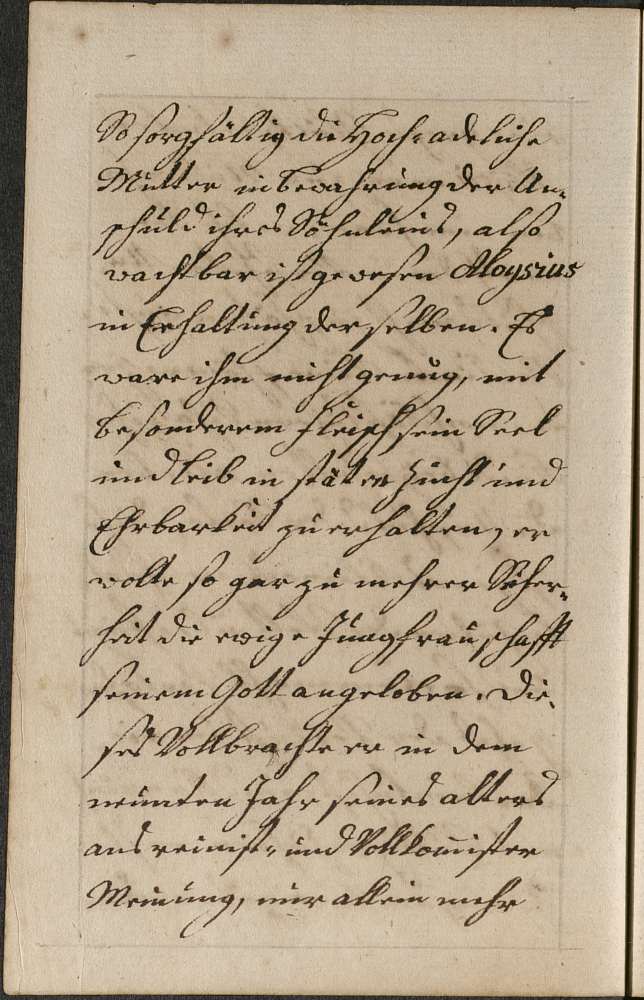 So sorgfältig die Hoch-adeliche
Mutter in bewahrung der Un-
schuld ihres Söhnleins, also
wachtbar ist gewesen Aloysius
in Erhaltung derselben. Es
ware ihm nicht genug, mit
besonderem fleiß sein Seel
und leib in stäter zucht und
Ehrbarkeit zu erhalten, er
wolte so gar zu mehrer Sicher-
heit die ewige Jungfrauschafft
seinem Gott angeloben. Die-
ses Vollbrachte er in dem
neunten Jahr seines alters
aus reinist- und Vollkom̄ister
Meinung, nur allein mehr